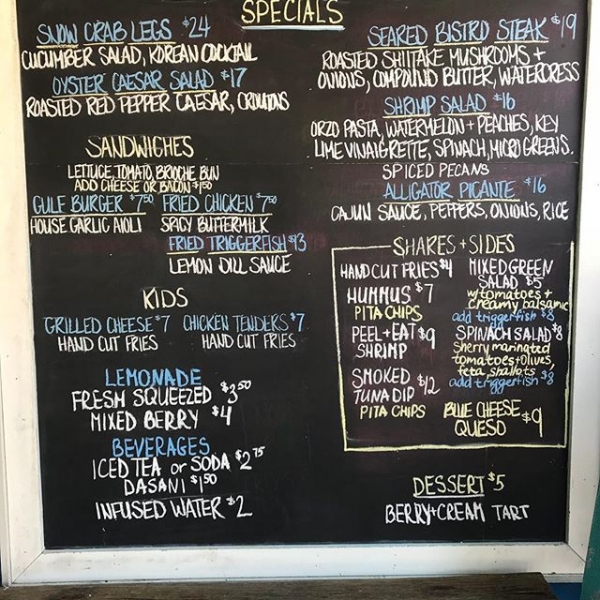 SPECIALS
SNOW CRAB LEGS $24
CUCUMBER SALAD, KOREAN COCKTAIL
OYSTER CAESAR SALAD $17
ROASTED RED PEPPER CAESAR, CROUTONS
SANDWICHES
LETTUCE, TOMATO, BRIOCHE BUN
ADD CHEESE OR BACON $1.50
GULF BURGER $7.50
HOUSE GARLIC AIOLI
FRIED CHICKEN $7.50
SPICY BUTTERMILK
FRIED TRIGGERFISH $13
LEMON DILL SAUCE
KIDS
GRILLED CHEESE $7
HAND CUT FRIES
CHICKEN TENDERS $7
HAND CUT FRIES
LEMONADE
FRESH SQUEEZED $3.50
MIXED BERRY $4
BEVERAGES
ICED TEA or SODA $2.75
DASANI $1.50
INFUSED WATER $2
SEARED BISTRO STEAK $19
ROASTED SHIITAKE MUSHROOMS +
ONIONS, COMPOUND BUTTER, WATERCRESS
SHRIMP SALAD $16
ORZO PASTA, WATERMELON + PEACHES, KEY
LIME VINAIGRETTE, SPINACH, MICRO GREENS.
SPICED PECANS
ALLIGATOR PICANTE $16
CAJUN SAUCE, PEPPERS, ONIONS, RICE
SHARES + SIDES
HAND CUT FRIES $4
HUMMUS $7
PITA CHIPS
PEEL + EAT $9
SHRIMP
SMOKED $12
TUNA DIP
PITA CHIPS
MIXED GREEN
SALAD $5
w/tomatoes +
creamy balsamic
add triggerfish $8
SPINACH SALAD $8
Sherry marinated
tomatoes + olives,
feta, shallots
add triggerfish $8
BLUE CHEESE $9
QUESO
DESSERT $5
BERRY + CREAM TART